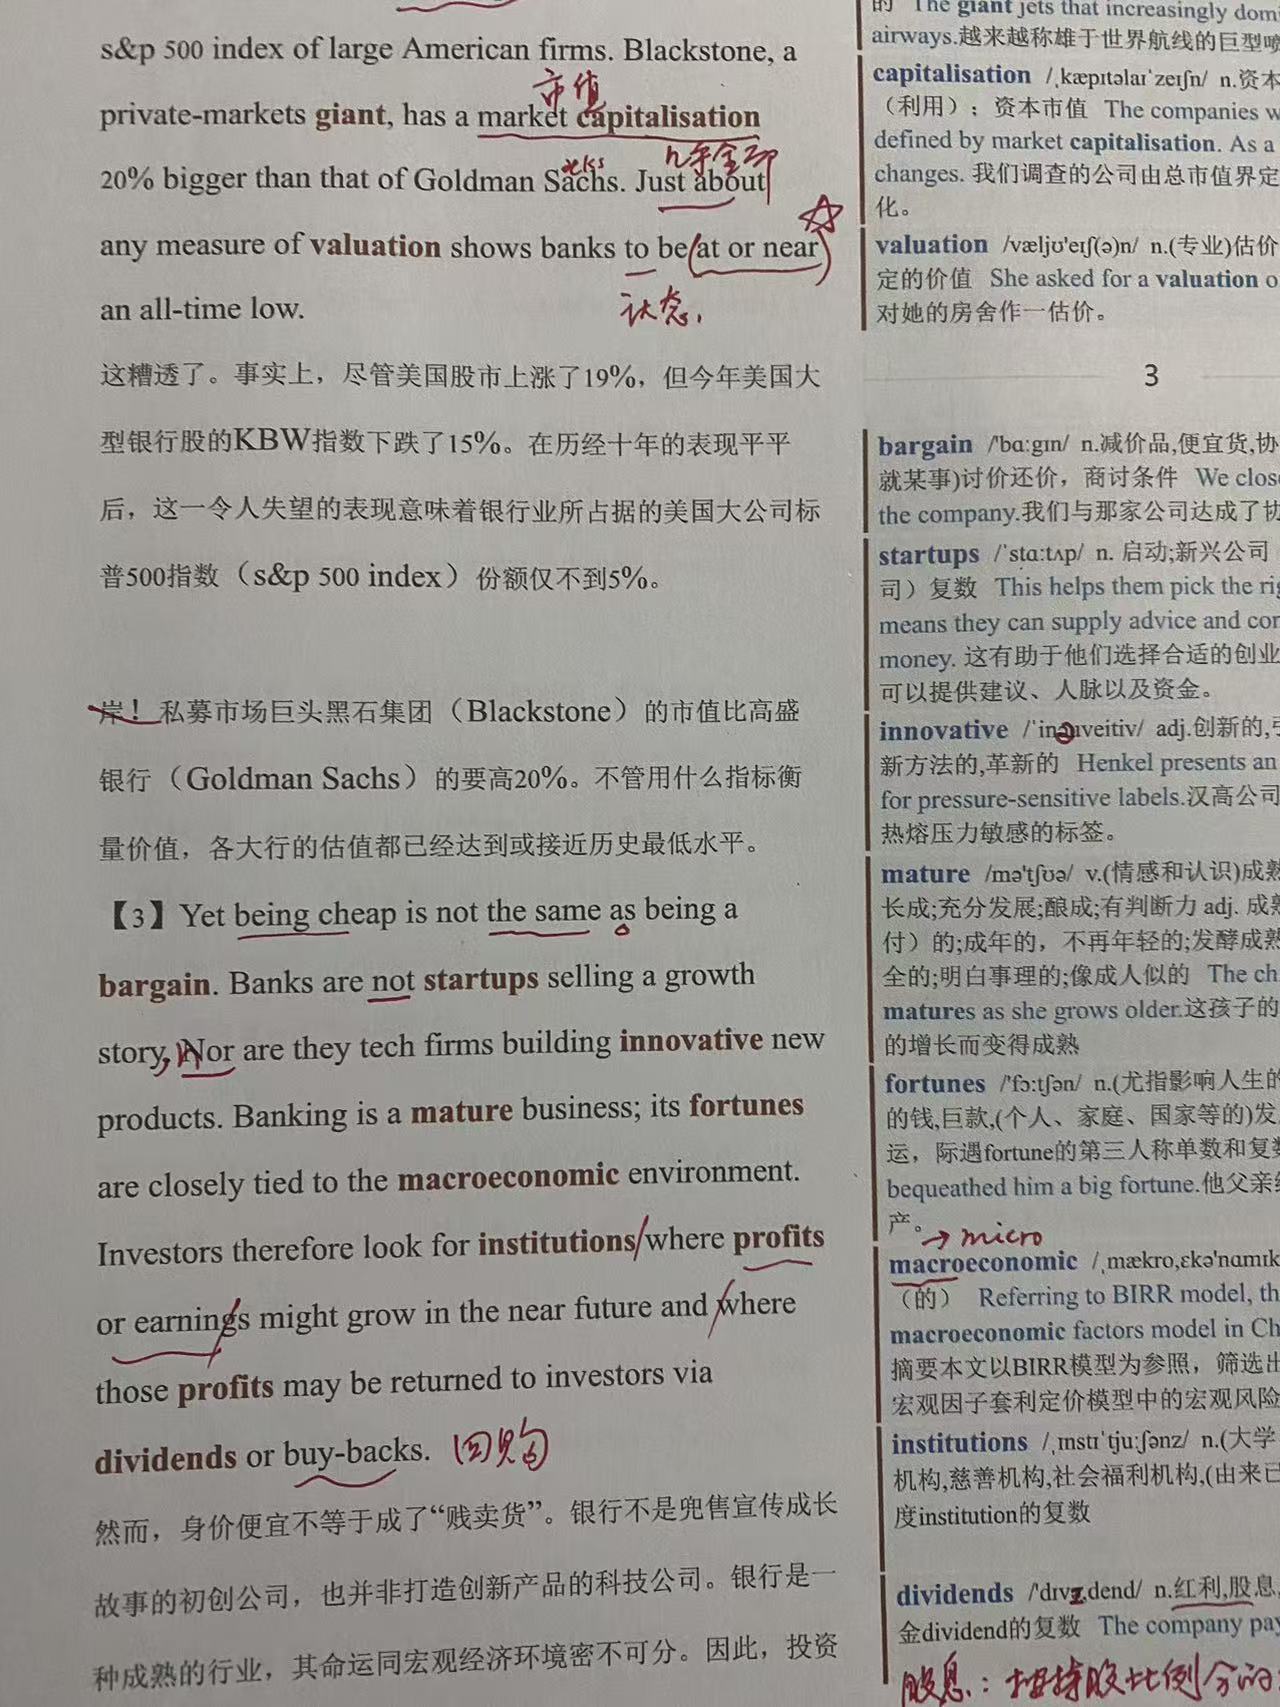 s&p 500 index of large American firms. Blackstone, a
市值
private-markets giant, has a market capitalisation
几乎全部
20% bigger than that of Goldman Sachs. Just about
any measure of valuation shows banks to be (at or near)
状态,
an all-time low.
这糟透了。事实上，尽管美国股市上涨了19%，但今年美国大
型银行股的KBW指数下跌了15%。在历经十年的表现平平
后，这一令人失望的表现意味着银行业所占据的美国大公司标
普500指数（s&p 500 index）份额仅不到5%。
岸！私募市场巨头黑石集团（Blackstone）的市值比高盛
银行（Goldman Sachs）的要高20%。不管用什么指标衡
量价值，各大行的估值都已经达到或接近历史最低水平。
【3】Yet being cheap is not the same as being a
bargain. Banks are not startups selling a growth
story, Nor are they tech firms building innovative new
products. Banking is a mature business; its fortunes
are closely tied to the macroeconomic environment.
Investors therefore look for institutions where profits
or earnings might grow in the near future and where
those profits may be returned to investors via
dividends or buy-backs. 回购
然而，身价便宜不等于成了“贱卖货”。银行不是兜售宣传成长
故事的初创公司，也并非打造创新产品的科技公司。银行是一
种成熟的行业，其命运同宏观经济环境密不可分。因此，投资
的 The giant jets that increasingly
airways.越来越称雄于世界航线的巨型
capitalisation /ˌkæpɪtəlaɪˈzeɪʃn/ n.资本
（利用）；资本市值 The companies
defined by market capitalisation. As a
changes. 我们调查的公司由总市值界定
化。
valuation /væljʊ'eɪʃ(ə)n/ n.(专业)估价
定的价值 She asked for a valuation
对她的房舍作一估价。
3
bargain /'bɑːgɪn/ n.减价品,便宜货,协
就某事)讨价还价，商讨条件 We
the company.我们与那家公司达成了
startups /ˈstɑːtʌp/ n. 启动;新兴公司
司）复数 This helps them pick the
means they can supply advice and
money. 这有助于他们选择合适的创业
可以提供建议、人脉以及资金。
innovative /ˈinəuveitiv/ adj.创新的,
新方法的,革新的 Henkel presents an
for pressure-sensitive labels.汉高公司
热熔压力敏感的标签。
mature /mə'tʃʊə/ v.(情感和认识)成熟
长成;充分发展;酿成;有判断力 adj. 成
付）的;成年的，不再年轻的;发酵成
全的;明白事理的;像成人似的 The
matures as she grows older.这孩子的
的增长而变得成熟
fortunes /'fɔːtʃən/ n.(尤指影响人生的
的钱,巨款,(个人、家庭、国家等的)发
运，际遇fortune的第三人称单数和复
bequeathed him a big fortune.他父亲
产。
→ micro
macroeconomic
（的） Referring to BIRR model,
macroeconomic factors model in
摘要本文以BIRR模型为参照，筛选出
宏观因子套利定价模型中的宏观风险
institutions /ˌɪnstɪˈtjuːʃənz/ n.(大学
机构,慈善机构,社会福利机构,(由来已
度institution的复数
dividends n.红利,股息
金dividend的复数 The company
股息：按持股比例分的